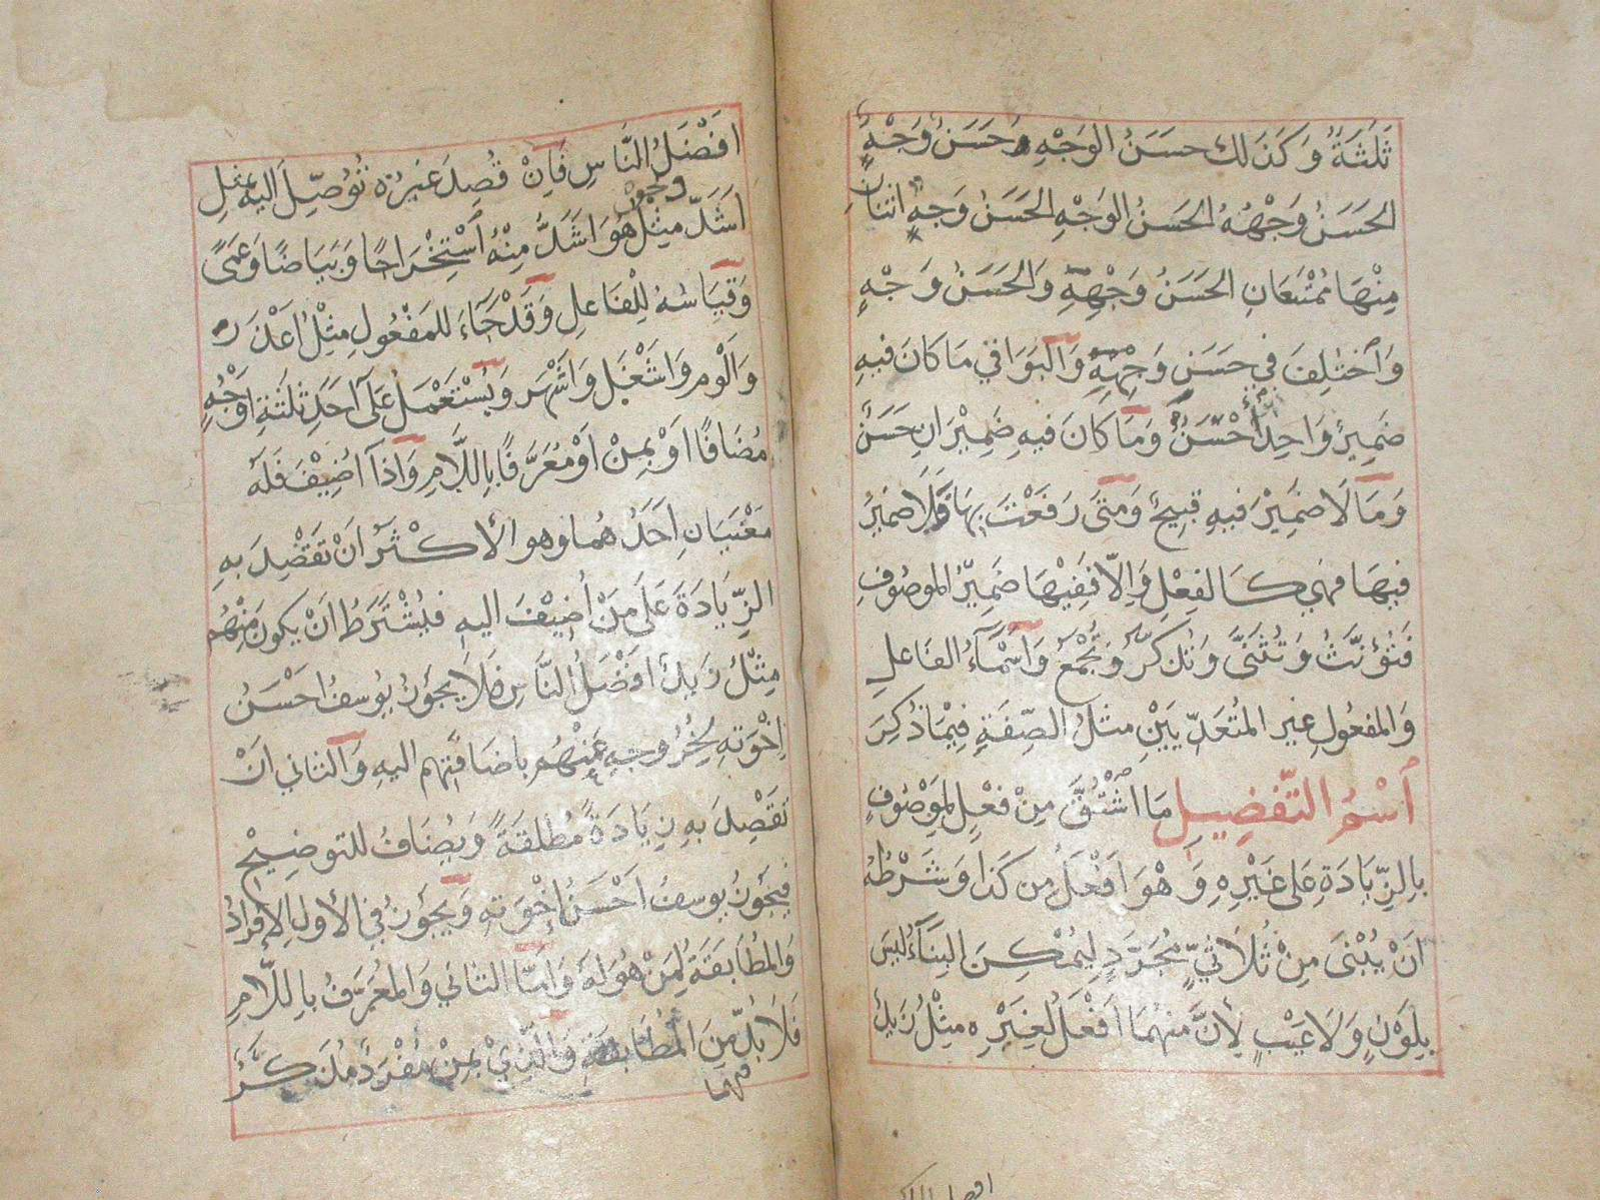 ثَلٰثَةٌ وَكَذٰلك حسَنُ الوَجْهِ وَحَسَنُ وَجْهٍ
الحَسَنُ وَجْهُهُ الحَسَنُ الوَجْهِ الحَسَنُ وَجهٍ اثنان
مِنْهَا مُمْتَنِعَانِ الحَسَنُ وَجْهِهِ وَالحَسَنُ وَجْهٍ
وَاخْتُلِفَ فِي حَسَنِ وَجْهِهِ وَالبَوَاقي مَا كَانَ فيهِ
ضَمِيرٌ وَاحِدٌ أَحْسَنُ وَمَا كَانَ فيهِ ضَمِيْرَانِ حَسَنٌ
وَمَا لَا ضَمِيْرَ فيهِ قبِيحٌ وَمَتَى رَفَعْتَ بِهَا فَلَا ضميْرَ
فيهَا فهي كَالفِعْلِ وَاِلَّا فَفِيْهَا ضَمِيْرُ الموصُوفِ
فَتُؤَنَّثُ وَتُثَنَّى وَتُذكَّرُ وَتُجْمَعُ وَأَسْمَآءُ الفَاعلِ
وَالمفعُولِ غير المُتَعَدِّيَيْنِ مثلُ الصِّفَةِ فِيْمَا ذُكِرَ
اَسْمُ التَّفضِيلِ مَا اشْتُقَّ مِنْ فِعْلٍ لِمَوْصُوفٍ
بِالزِّيَادَةِ عَلى غَيْرِهِ وَهْوَ اَفْعَلُ مِن كَذَا وَشَرْطُهُ
اَنْ يُبْنَى مِنْ ثُلَاثِيٍّ مُجَرَّدٍ لِيُمْكِنَ البِنَآءُ ليسَ
بِلَوْنٍ وَلَا عَيْبٍ لِأَنَّ مِنْهُمَا اَفْعَلُ لِغَيْرِهِ مثْلُ زَيدٌ
افضل الناس
اَفْضَلُ النَّاسِ فَاِنْ قُصِدَ غَيرُهُ تُوُصِّلَ اليهِ بمثلِ
ونحوه
اَشَدّ مثِلُ هُوَ اَشَدُّ مِنْهُ اسْتِخْرَاجًا وَبَيَاضًا وَعَمًى
وَقِيَاسُهُ لِلْفَاعِلِ وَقَدْ جَآءَ للمَفْعُولِ مِثْلُ اَعْذَرَ
وَاَلْوم وَاَشْغَلَ وَاَشْهَر وَيُسْتَعْمَلُ عَلَى اَحَدِ ثلٰثَةِ اَوْجُهٍ
مُضَافًا اَوْ بِمِنْ اَوْ مُعَرَّفًا بِاللَّامِ وَاِذَا اُضِيْفَ فَلَهُ
مَعْنَيَانِ اَحَدُهُمَا وهو الأكْثَرُ اَنْ تَقْصِدَ بهِ
الزِّيَادَةَ عَلَى مَنْ اُضِيْفَ اليهِ فيُشْتَرَطُ اَنْ يكونَ مِنْهُم
مِثْلُ زَيدٌ اَفْضَلُ النَّاسِ فَلَا يجوُزُ يُوسفُ اَحْسَنُ
اِخْوَتِهِ لِخُرُوجِهِ عَنْهُمْ بِاضَافَتِهِم اليهِ وَالثاني اَنْ
تَقْصِدَ بهِ زِيَادَةً مُطلقَةً وَيُضَافُ للتوضِيْحِ
فيجُوزُ يوسفُ اَحْسَنُ اِخْوَتِهِ وَيجُوزُ فِي الأولِ الاِفرادُ
وَالمُطَابَقَةُ لِمَنْ هُوَ لَهُ وَاَمَّا الثاني وَالمُعَرَّفُ بِاللَّامِ
فَلَا بُدَّ مِنَ المُطَابَقَةِ وَالَّذِيْ بِمِنْ مُفْرَدٌ مُذكَّرٌ
فيهما